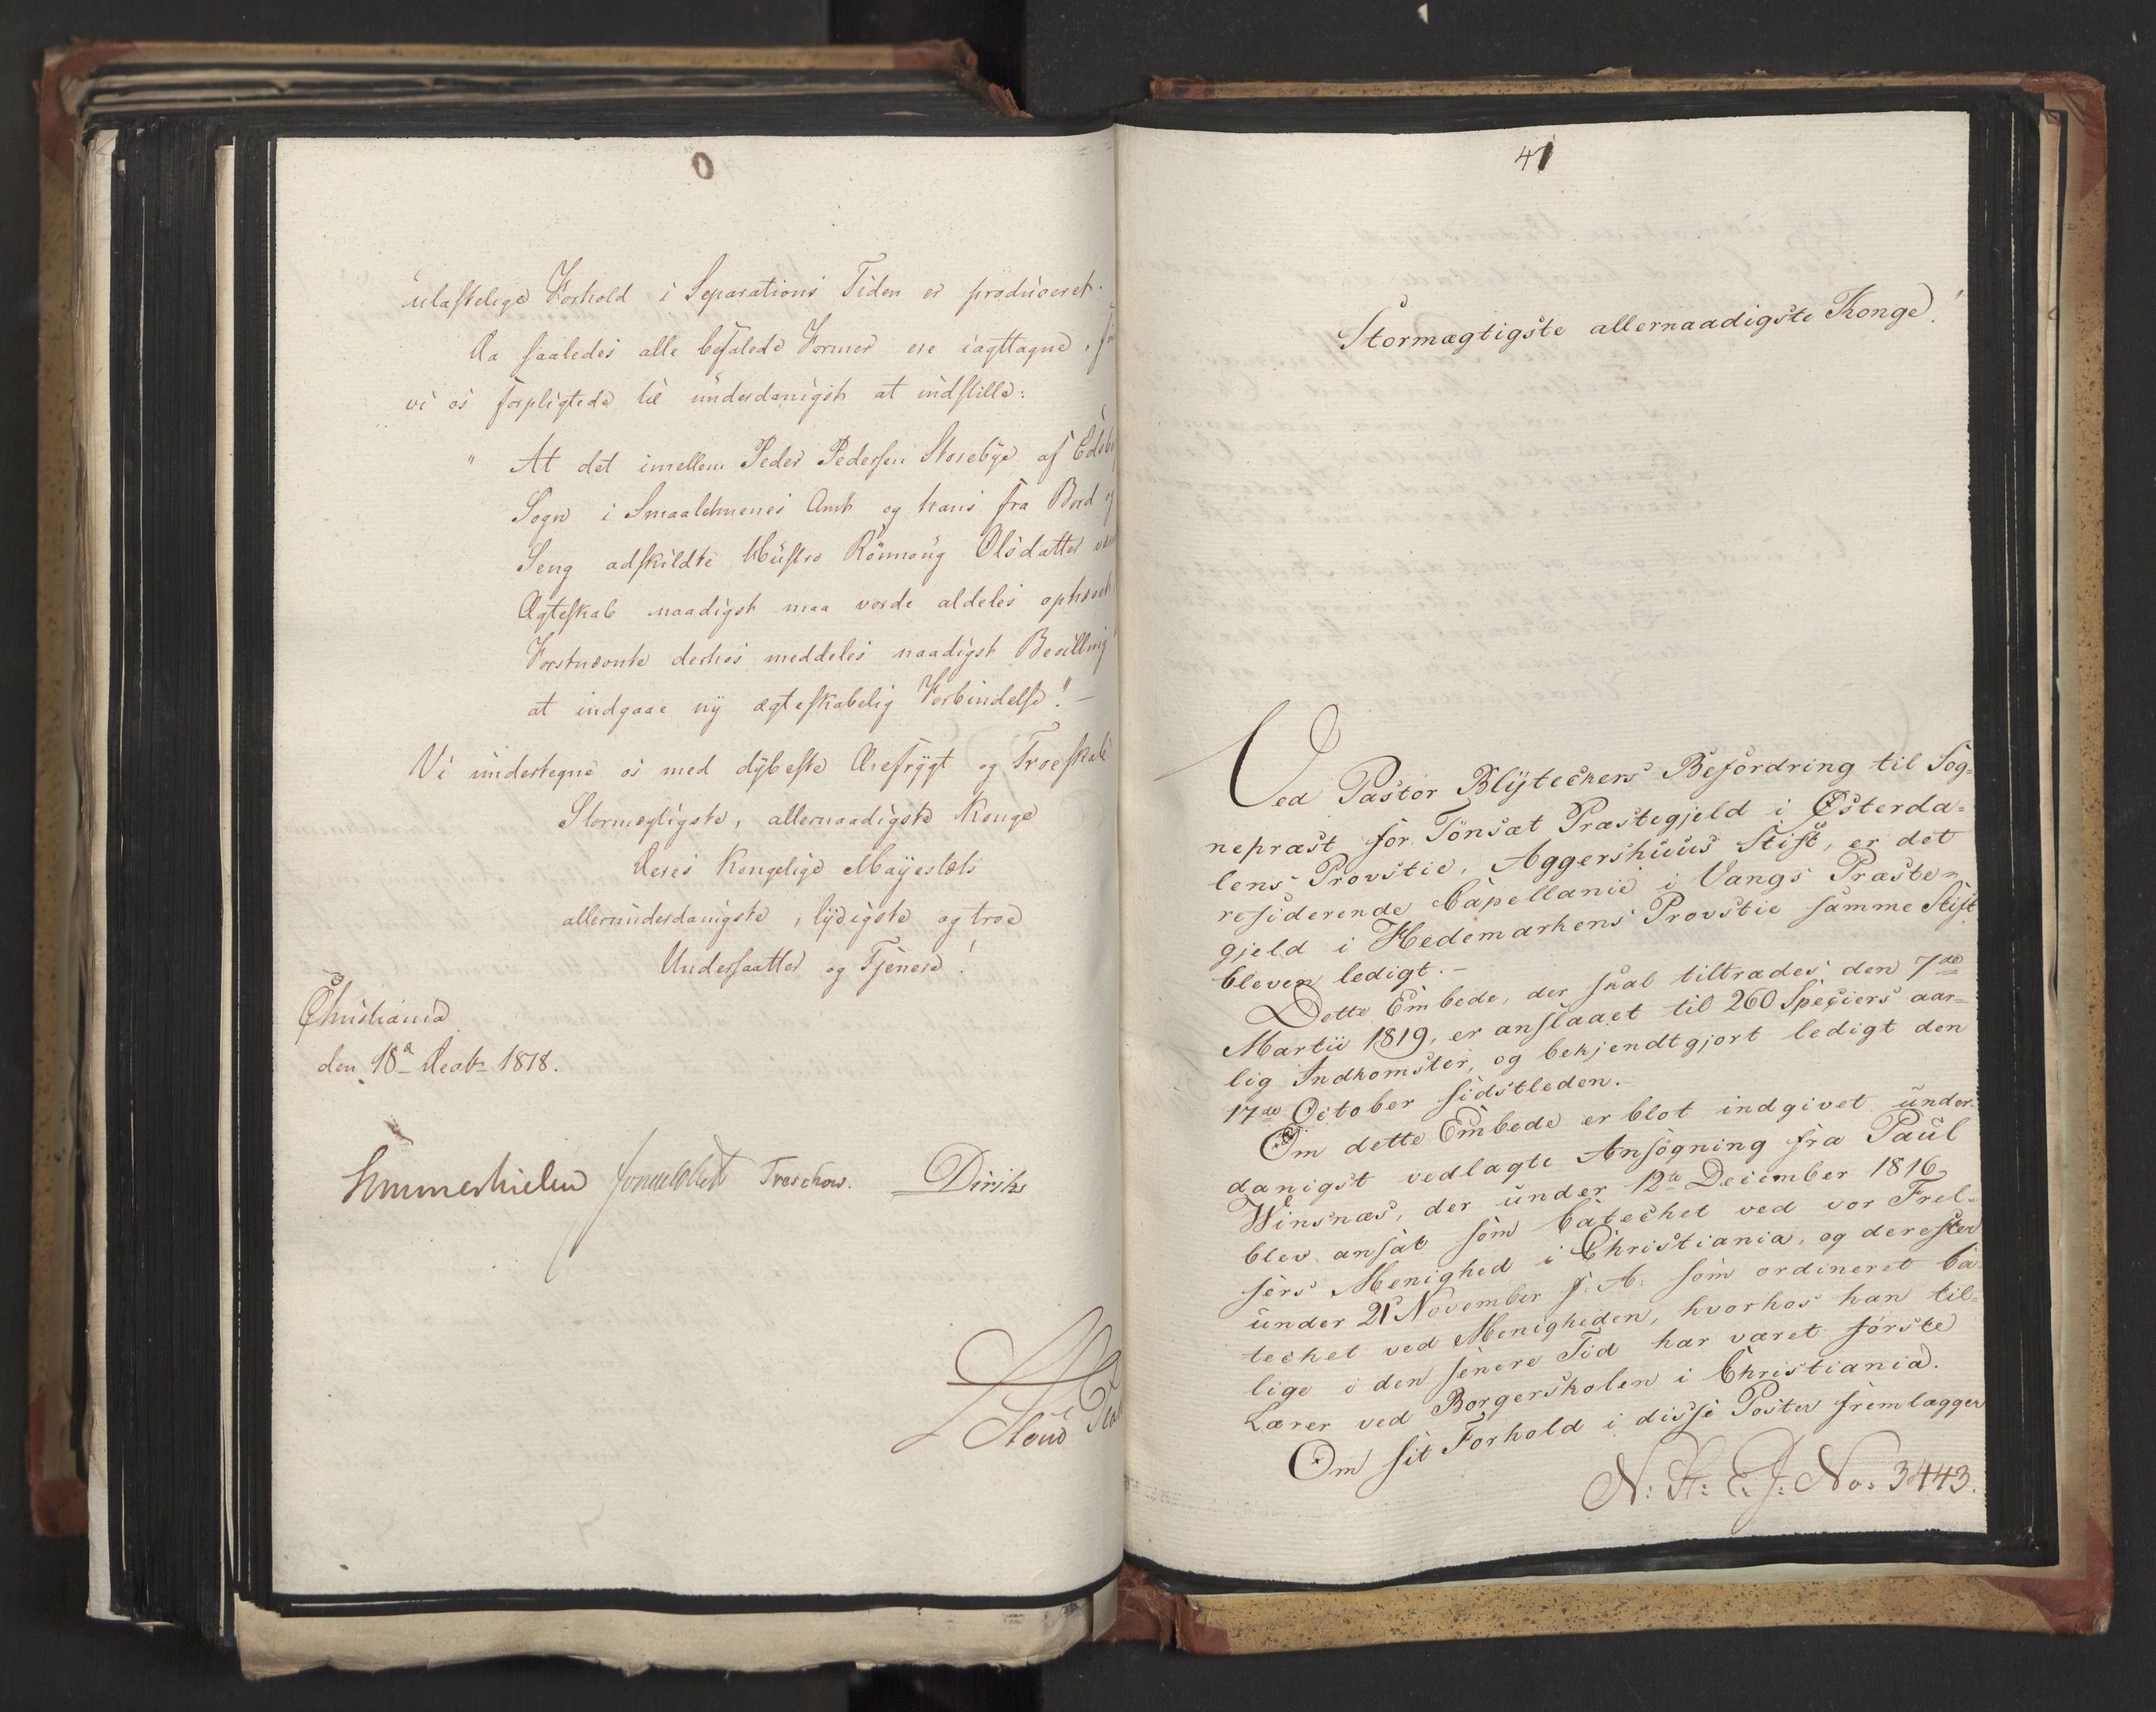 0
ulastelige Forhold i Separations Tiden er produceret.
Da saaledes alle befalede Former ere iagttagne,
vi os forpligtede til underdanigst at indstille:
" At det imellem Peder Pedersen Storebye af
Sogn i Smaalehnenes Amt og hans fra Bord og
Seng adskildte Hustro Rönnoug Olsdatter
Ægteskab naadigst maa vorde aldeles ophævet
Forstnævnte derhos meddeles naadigst Bevilling
at indgaae ny ægteskabelig Forbindelse." –
Vi undertegne os med dybeste Ærefrygt og Troeskab
Stormægtigste, allernaadigste Konge
Deres Kongelige Mayestæts
allerunderdanigste, lydigste og troe
Undersaatter og Tjenere!
Christiania
den 18d Decbr 1818.
Sommerhielm Treschow. Diriks
41
Stormægtigste allernaadigste Konge!
Ved Pastor Blÿteckers Befordring til Sog=
nepræst for Tönsæt Præstegjeld i Østerda=
lens Provstie, Aggershuus Stift, er det
residerende Capellanie i Vangs Præste=
gjeld i Hedemarkens Provstie samme Stift
bleven ledigt. –
Dette Embede, der skal tiltrædes den 7de
Martii 1819, er anslaaet til 260 Speciers aar=
lig Indkomster, og bekjendtgjort ledigt den
17de October sidstleden. –
Om dette Embede er blot indgivet under=
danigst vedlagte Ansögning fra Paul
Winsnæs, der under 12te December 1816
blev ansat som Catechet ved vor Frel=
sers Menighed i Christiania, og derefter
under 21 November f. A. som ordineret Ca=
techet ved Menigheden, hvorhos han til=
lige i den senere Tid har været förste
Lærer ved Borgerskolen i Christiania.
Om sit Forhold i disse Poster fremlægger
No. 3443.